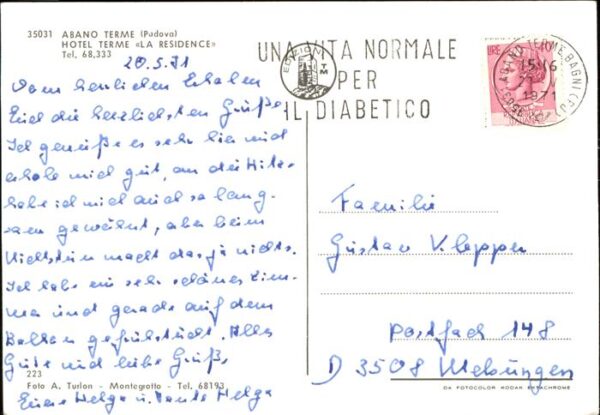 35031 ABANO TERME (Padova)
HOTEL TERME «LA RESIDENCE»
Tel. 68.333
20.5.71
Vom herrlichen
Euch die herzlichsten Grüße.
Ich genieße es sehr hier und
erhole mich gut, an die Hitz-
habe ich mich auch so lang-
sam gewöhnt, aber beim
Nichtstun macht das ja nichts.
Ich habe ein sehr schönes Zim-
mer und gerade auf dem
Balkon gefrühstückt. Alles
Gute und liebe Grüße
Eure Helga u. Tante Helga
223
Foto A. Turlon - Montegrotto - Tel. 68193
UNA VITA NORMALE
PER
IL DIABETICO
EDIZIONI
TM
LIRE
ABANO TERME BAGNI
15-16
1971
35031
Familie
Gustav Klepper
Postfach 148
D 3508 Melsungen
DA FOTOCOLOR KODAK EKTACHROME